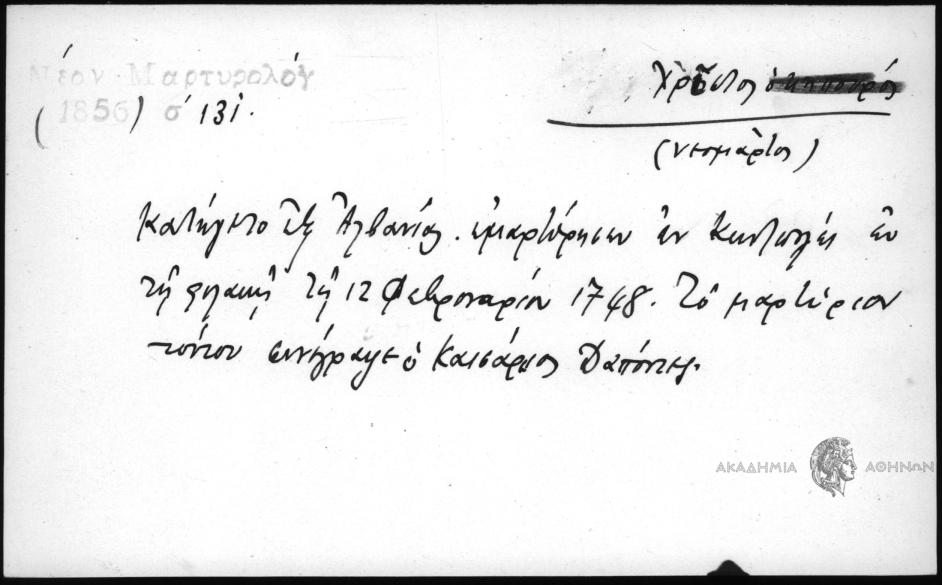 Νέον Μαρτυρολόγ
(1856) σ 131.
Χρῆστος ὁ κηπουρός
(νεομάρτυς)
Κατήγετο ἐξ Ἀλβανίας. ἐμαρτύρησεν ἐν Κωνπόλει ἐν
τῇ φυλακῇ τῇ 12 Φεβρουαρίου 1748. Τὸ μαρτύριον
τούτου συνέγραψε ὁ Καισάριος Δαπόντες.
ΑΚΑΔΗΜΙΑ ΑΘΗΝΩΝ